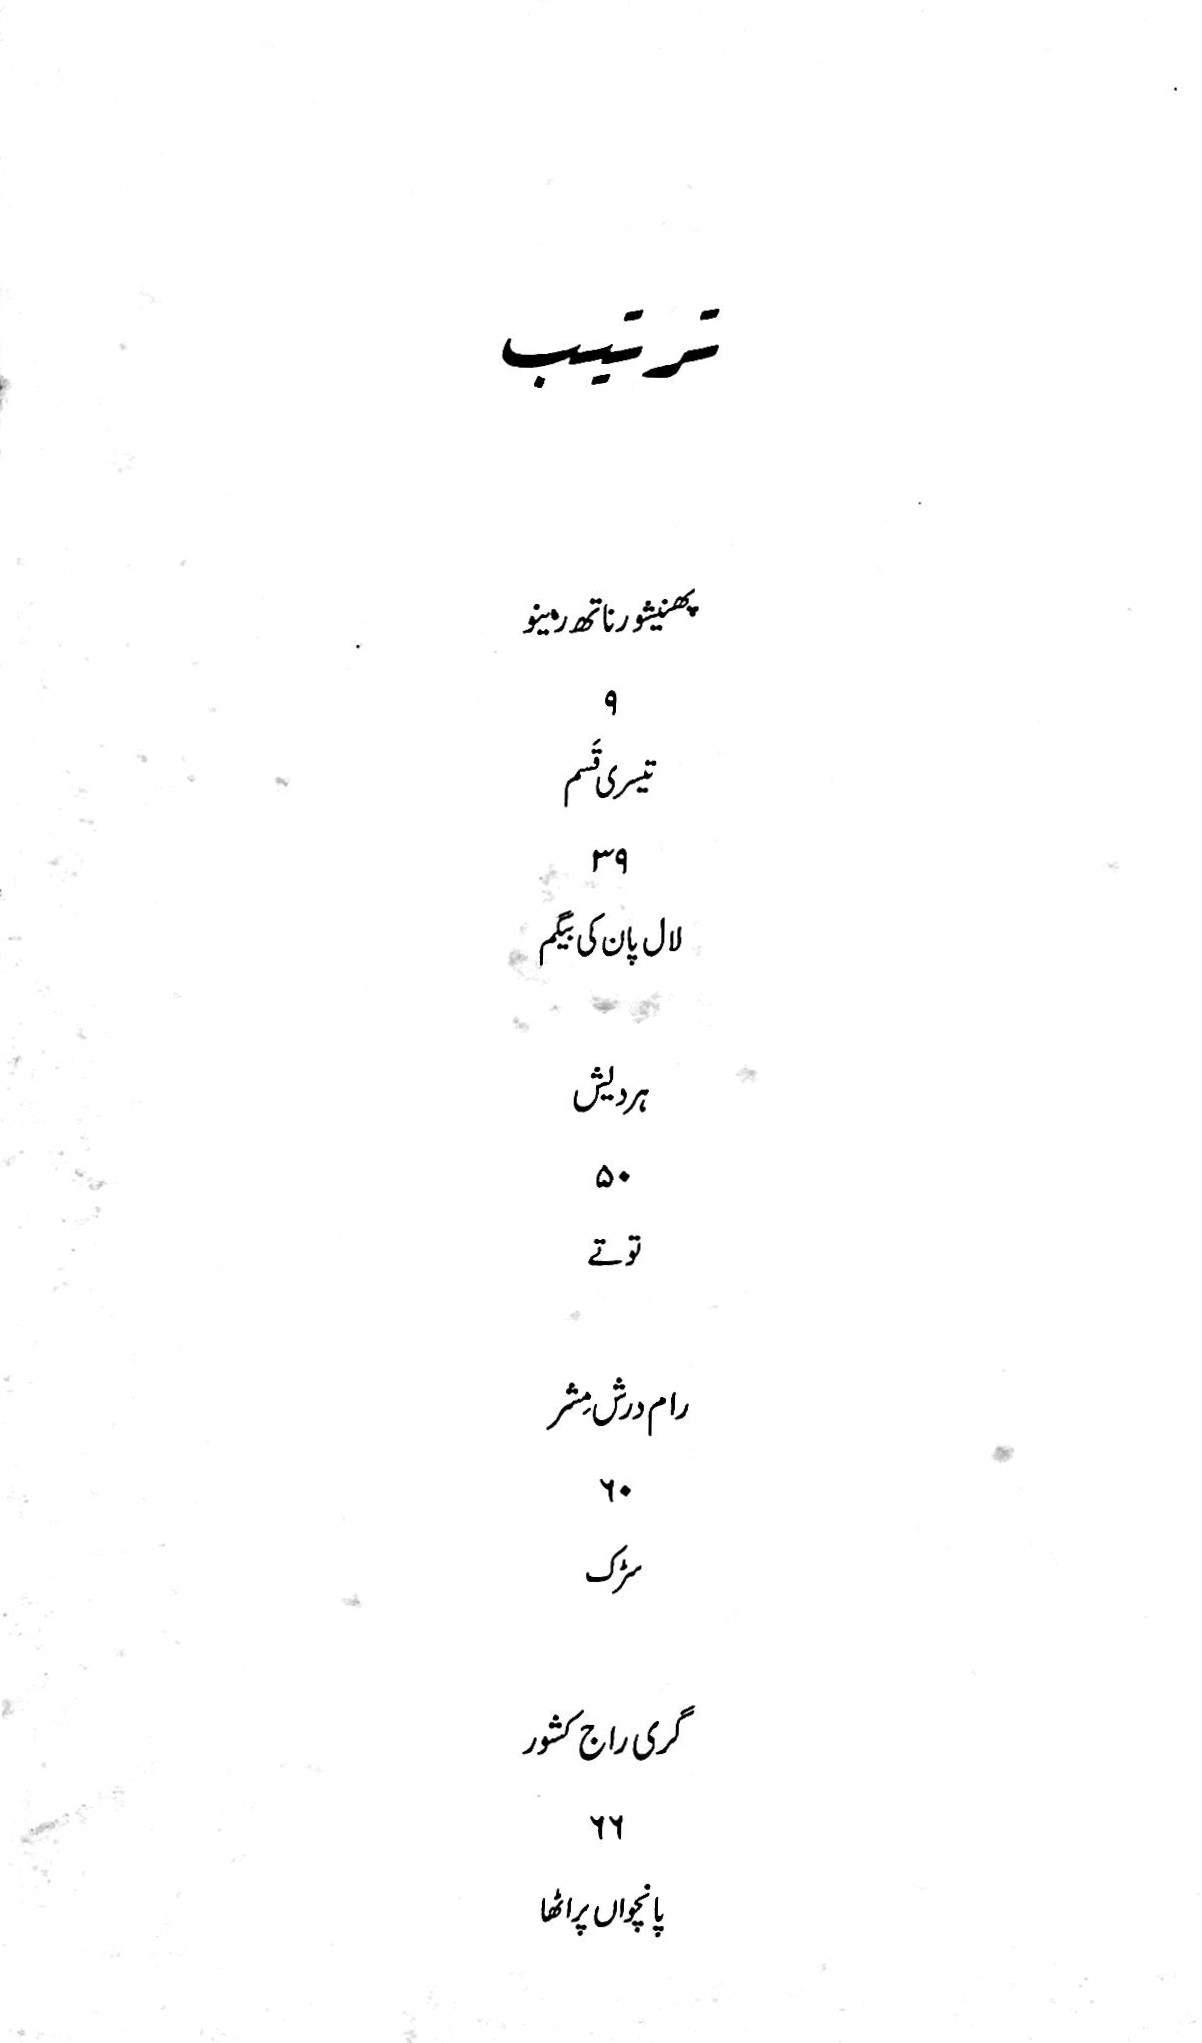 ترتیب
پھنیشور ناتھ رینو
۹
تیسری قَسم
۳۹
لال پان کی بیگم
ہردیش
۵۰
توتے
رام درش مِشر
۶۰
سڑک
گری راج کشور
۶۶
پانچواں پراٹھا